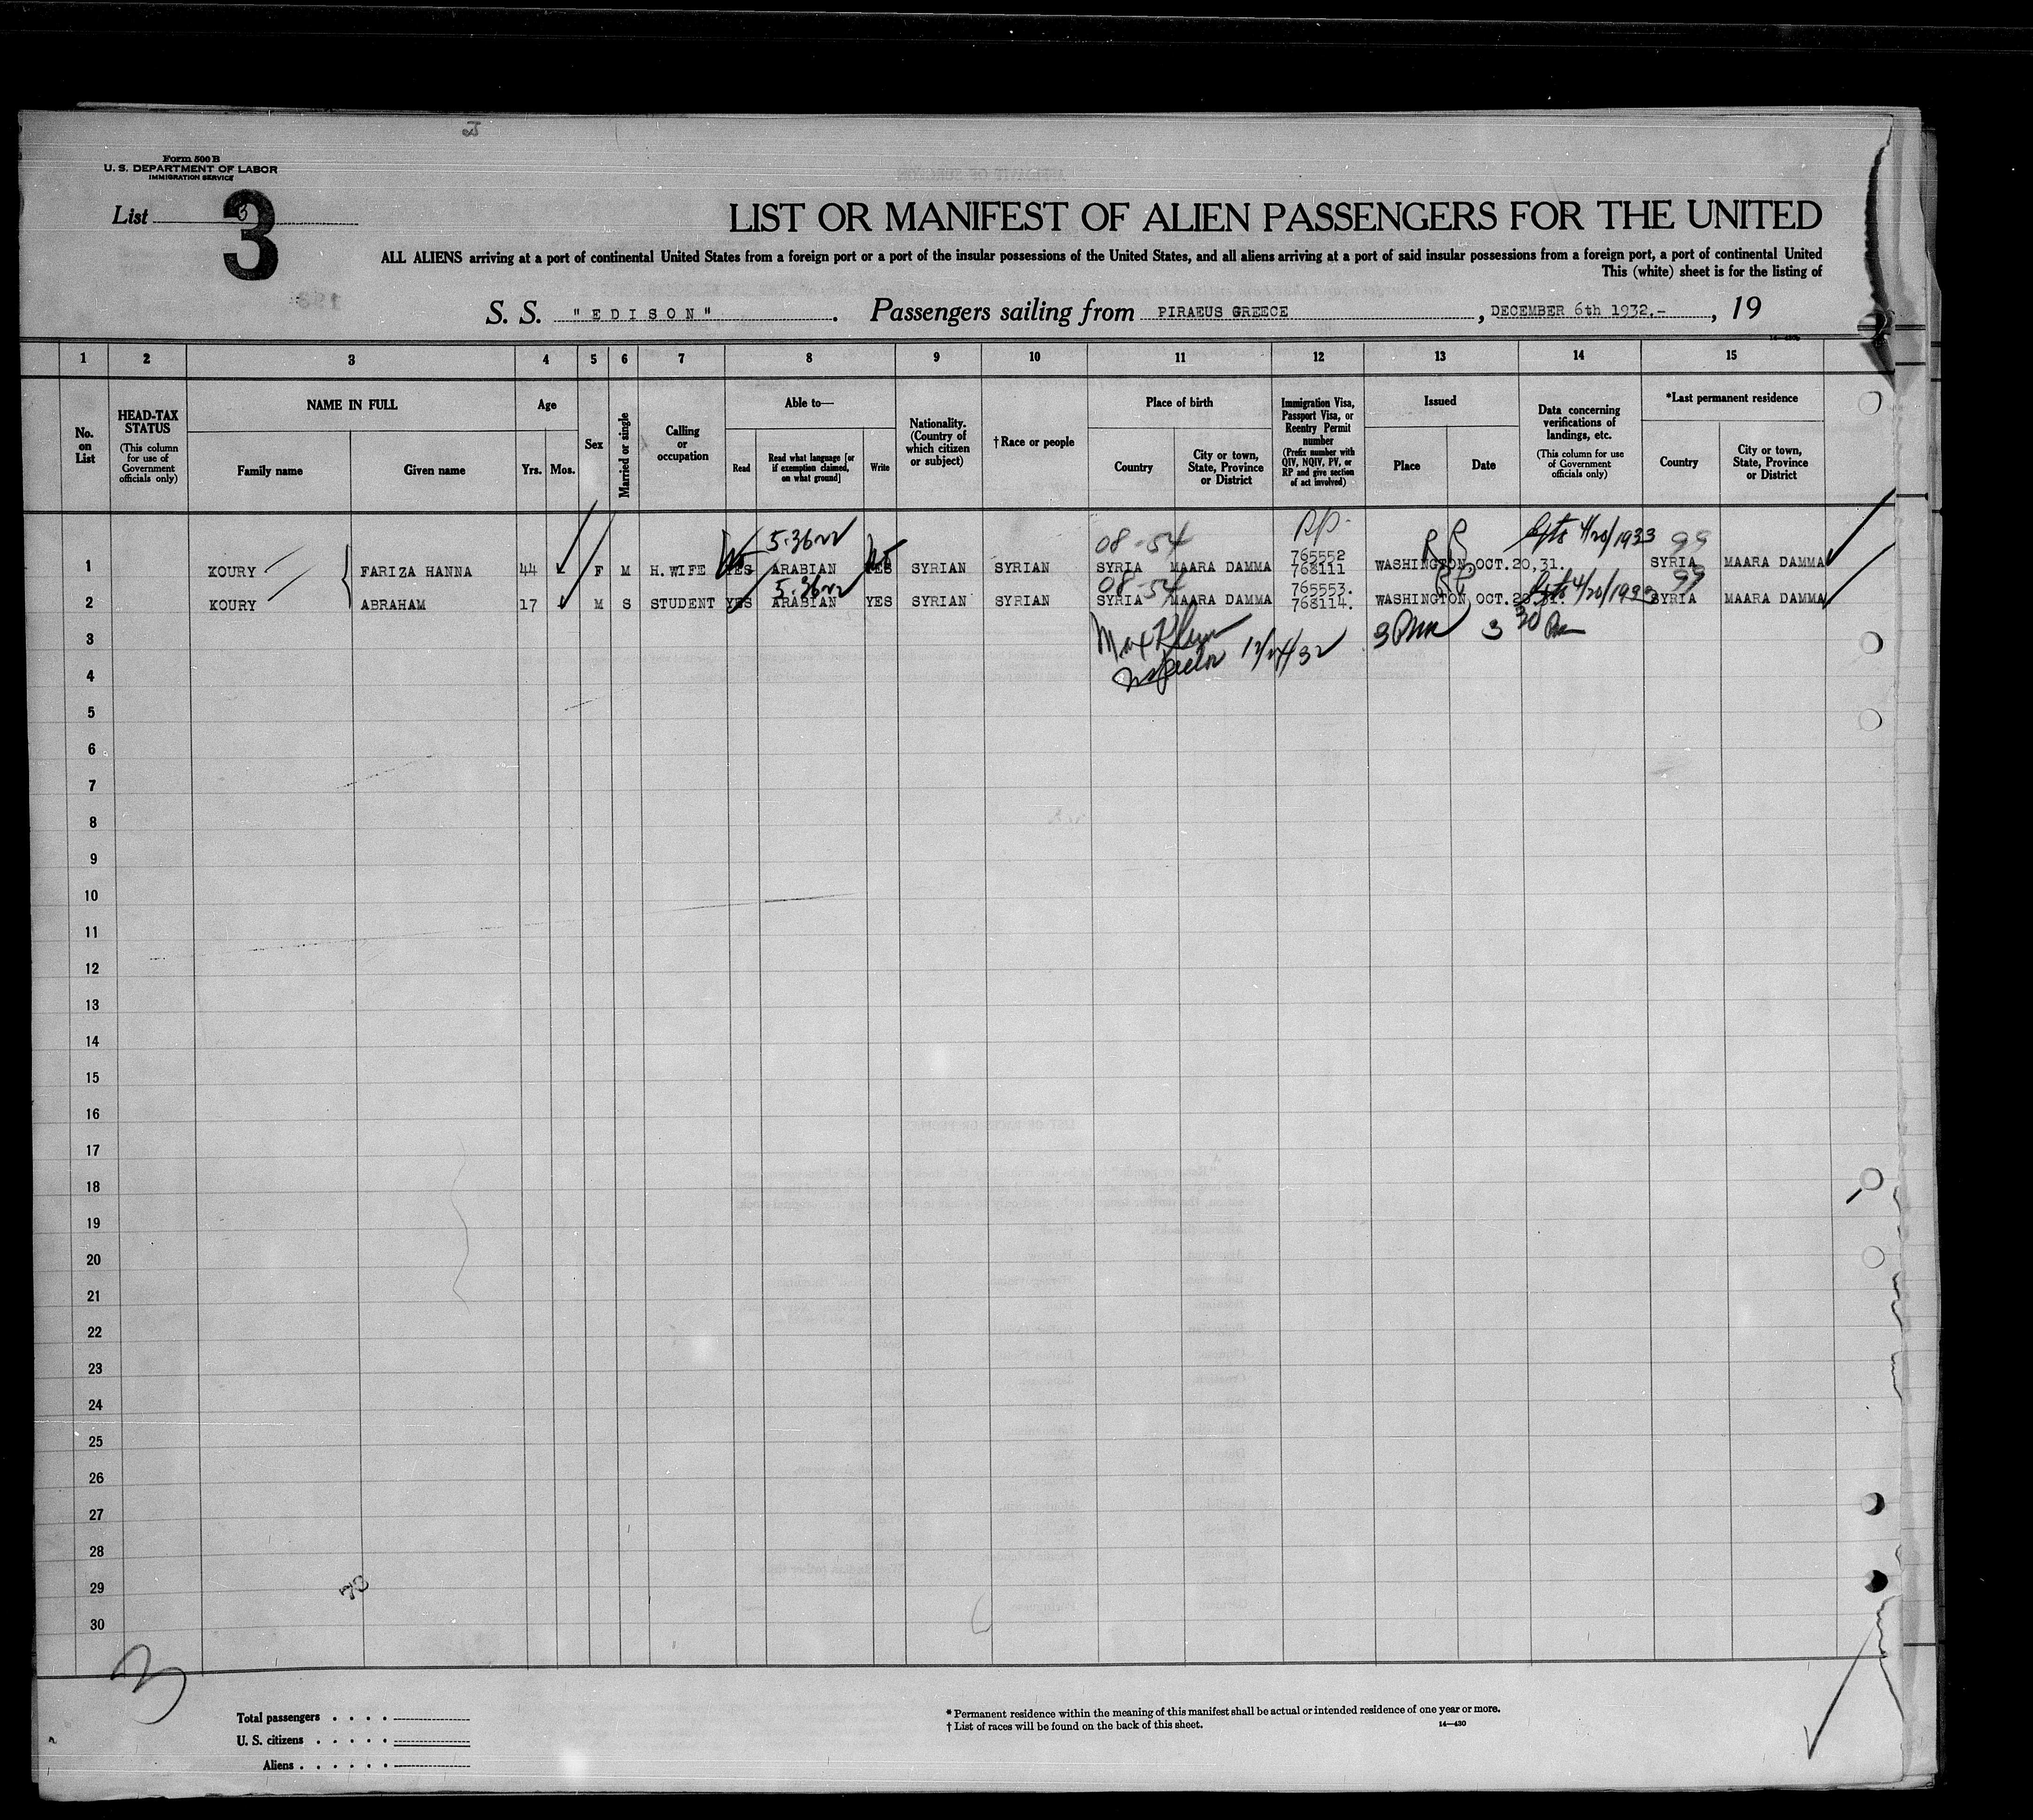 Form 500 B
U. S. DEPARTMENT OF LABOR
IMMIGRATION SERVICE
List 3
3
LIST OR MANIFEST OF ALIEN PASSENGERS FOR THE UNITED
ALL ALIENS arriving at a port of continental United States from a foreign port or a port of the insular possessions of the United States, and all aliens arriving at a port of said insular possessions from a foreign port, a port of continental United
This (white) sheet is for the listing of
S. S. "EDISON". Passengers sailing from PIRAEUS GREECE, DECEMBER 6th 1932.-, 19
1 2 3 4 5 6 7 8 9 10 11 12 13 14 15
No. on List
HEAD-TAX STATUS
(This column for use of Government officials only)
NAME IN FULL
Family name
Given name
Age
Yrs.
Mos.
Sex
Married or single
Calling or occupation
Able to—
Read
Read what language [or if exemption claimed, on what ground]
Write
Nationality. (Country of which citizen or subject)
†Race or people
Place of birth
Country
City or town, State, Province or District
Immigration Visa, Passport Visa, or Reentry Permit number
(Prefix number with QIV, NQIV, PV, or RP and give section of act involved)
Issued
Place
Date
Data concerning verifications of landings, etc.
(This column for use of Government officials only)
*Last permanent residence
Country
City or town, State, Province or District
5-36 08-54 RP RP 4/20/1933 99
1 KOURY FARIZA HANNA 44 F M H.WIFE YES ARABIAN YES SYRIAN SYRIAN SYRIA MAARA DAMMA 765552 768111 WASHINGTON, OCT.20,31. SYRIA MAARA DAMMA
5-36 08-54 RP 4/20/1933 99
2 KOURY ABRAHAM 17 M S STUDENT YES ARABIAN YES SYRIAN SYRIAN SYRIA MAARA DAMMA 765553. 768114. WASHINGTON, OCT.20,31. SYRIA MAARA DAMMA
3
Inspector 12/24/32
4
5
6
7
8
9
10
11
12
13
14
15
16
17
18
19
20
21
22
23
24
25
26
27
28
29
30
3
Total passengers . . . .
U. S. citizens . . . . .
Aliens . . . . . .
* Permanent residence within the meaning of this manifest shall be actual or intended residence of one year or more.
† List of races will be found on the back of this sheet.
14—430